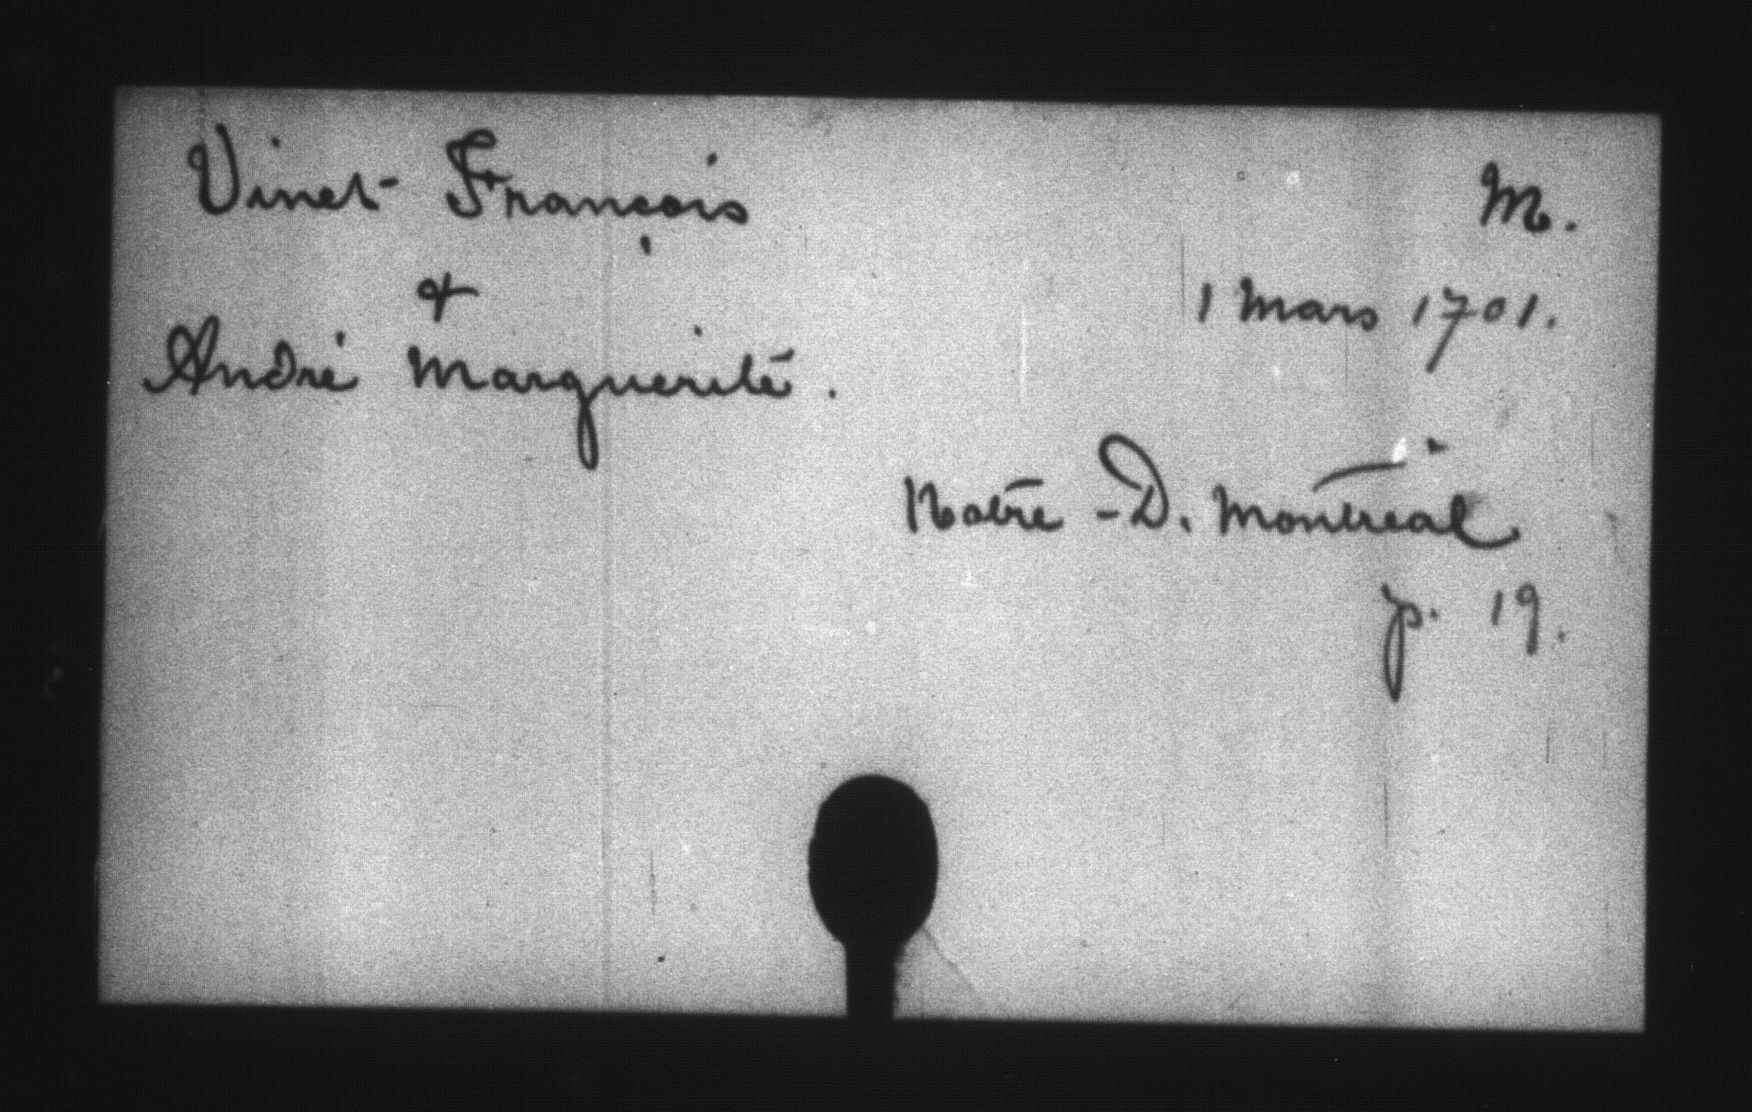 Vinet François M.
&
1 Mars 1701.
André Marguerite.
Notre-D. Montréal
p. 19.